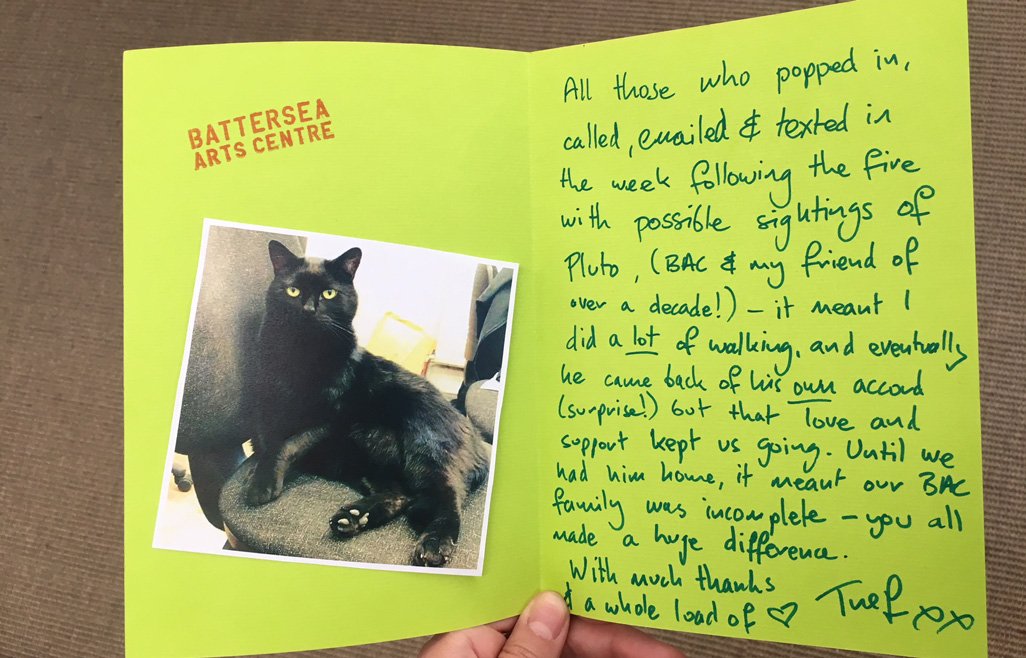 BATTERSEA
ARTS CENTRE
All those who popped in,
called, emailed & texted in
the week following the fire
with possible sightings of
Pluto, (BAC & my friend of
over a decade!) – it meant I
did a lot of walking, and eventually
he came back of his own accord
(surprise!) but that love and
support kept us going. Until we
had him home, it meant our BAC
family was incomplete – you all
made a huge difference.
With much thanks
& a whole load of ♡
xx